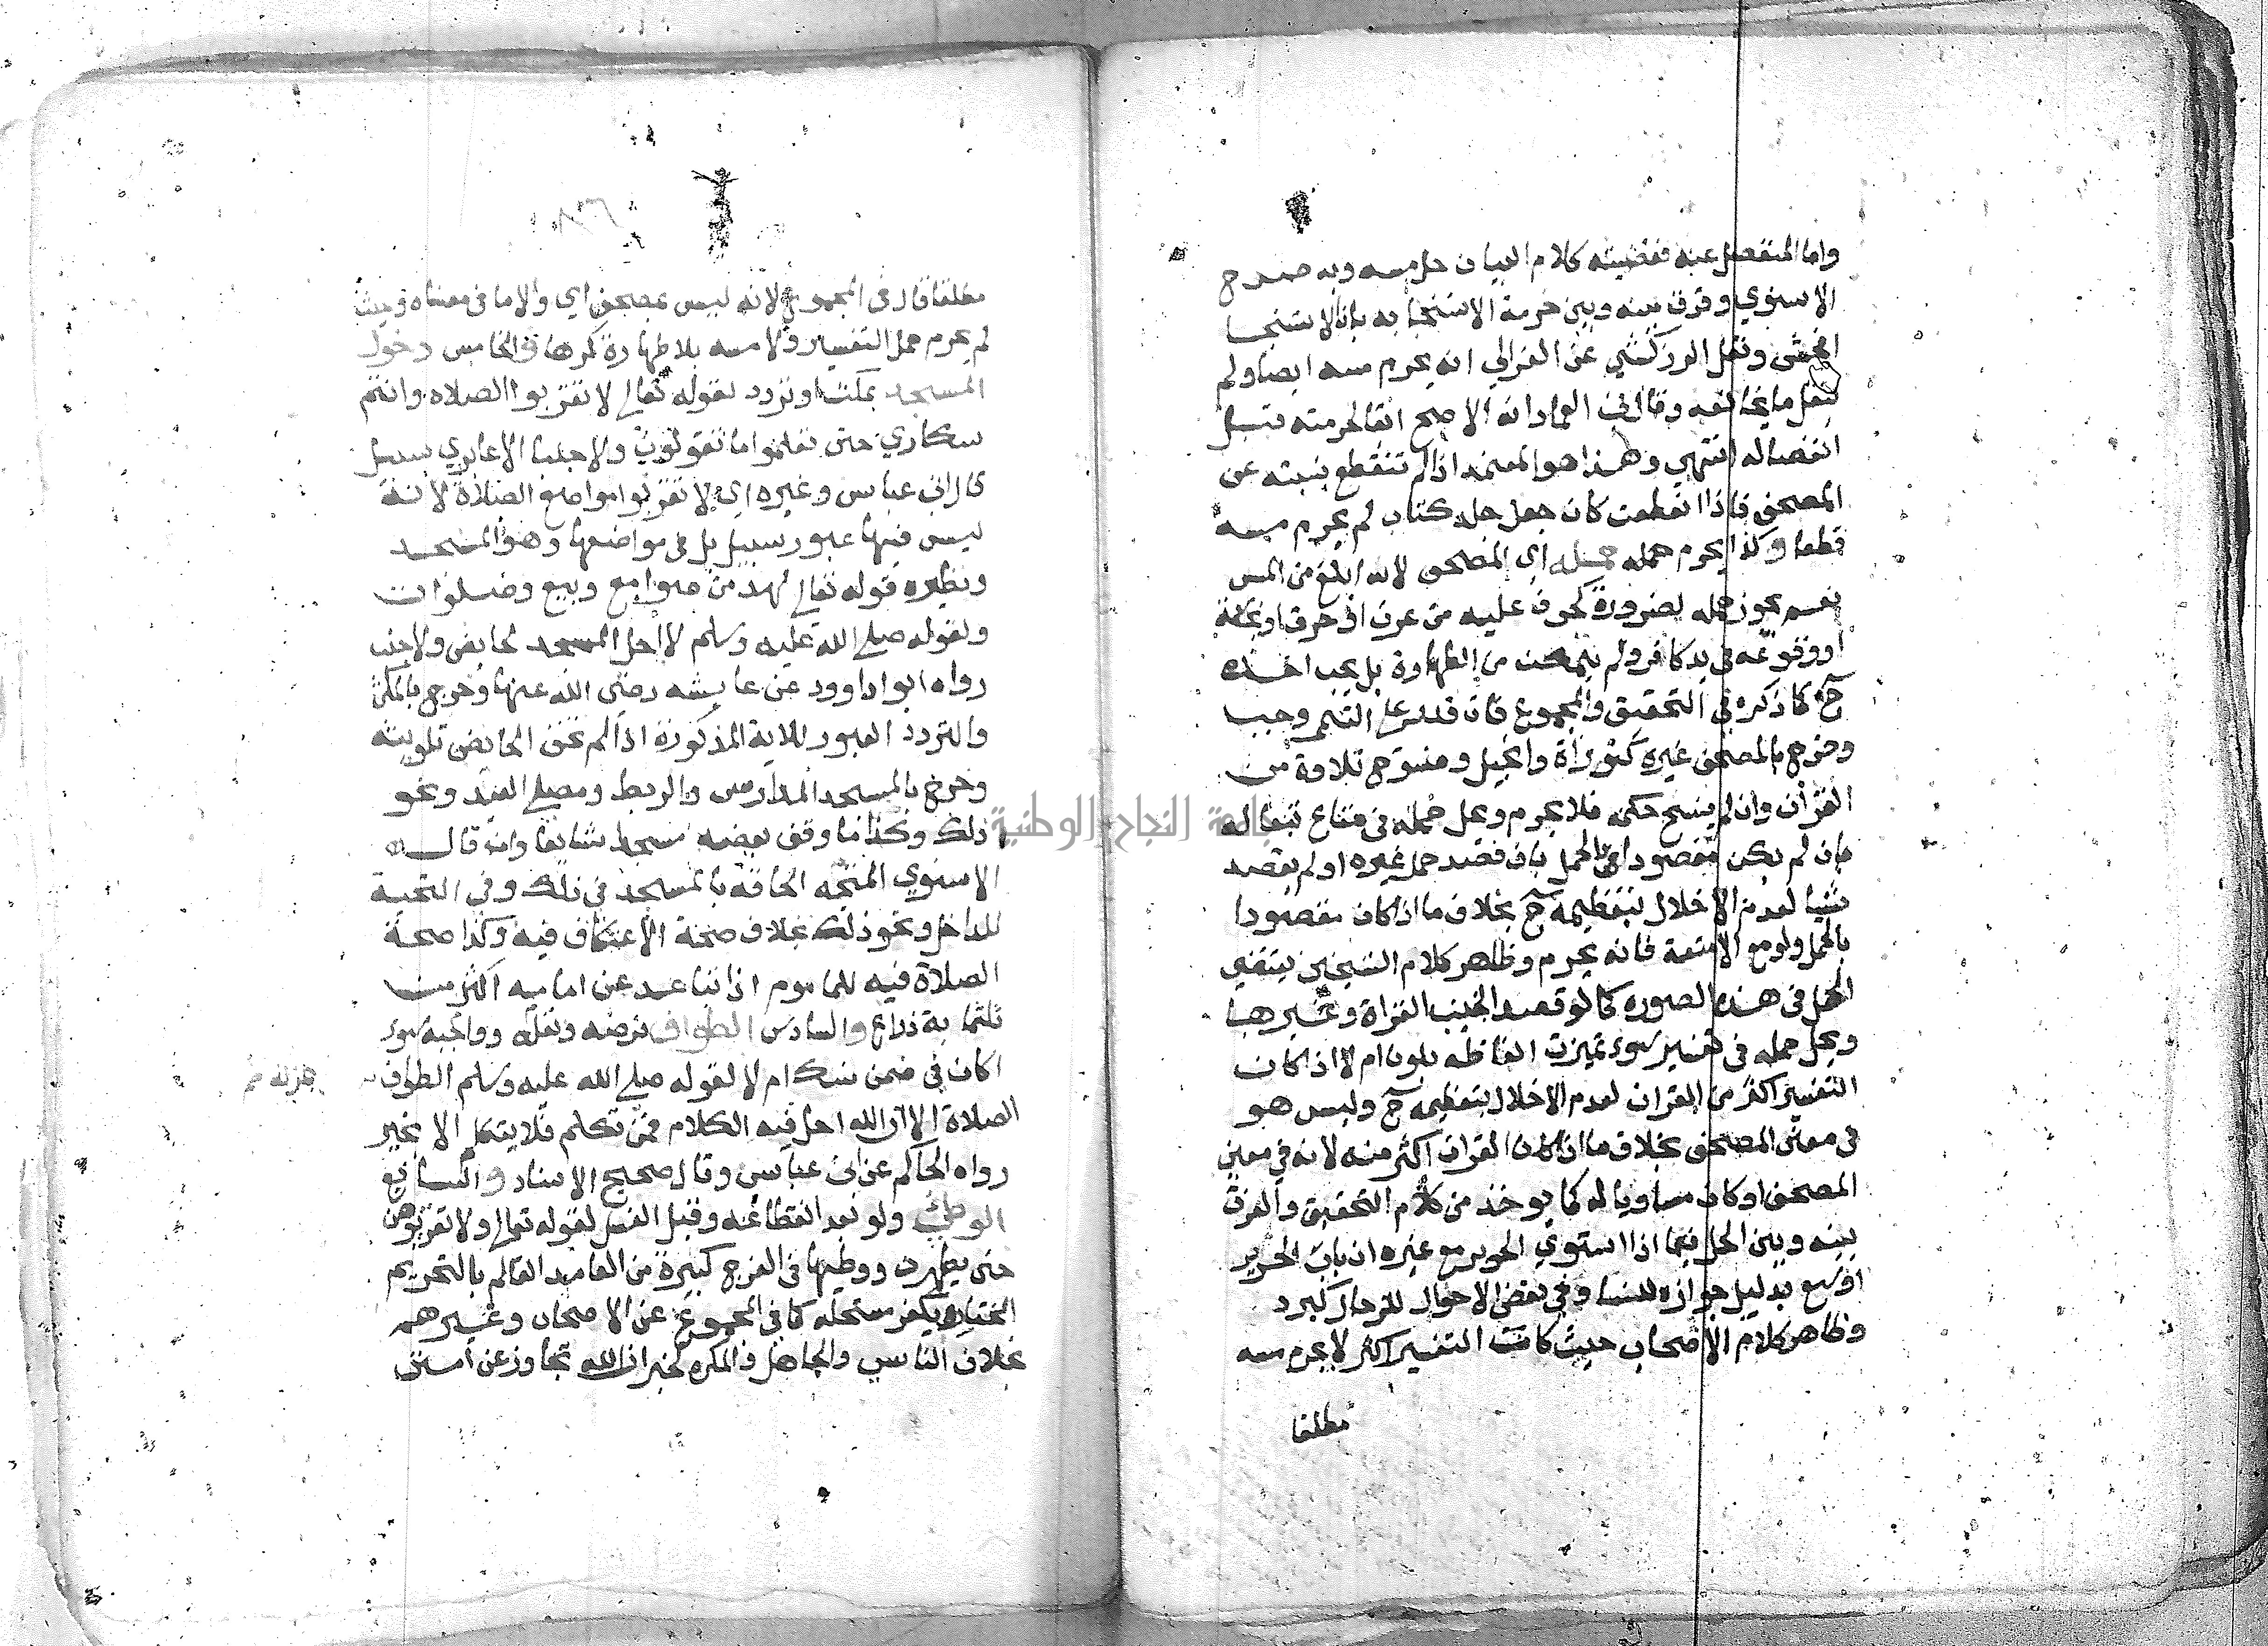 واما المنفصل عنه فقضيته كلام البيان حل مسه وبه صرح
الاسنوي وفرق بينه وبين حرمة الاستنجا به بان الاستنجا
افحش ونقل الزركشي عن الغزالي انه يحرم مسه ايضا ولم
ينقل ما يخالفه وقال ابن العماد انه الاصح ابقا لحرمته قبل
انفصاله انتهي وهذا هو المعتمد اذا لم تنقطع نسبته عن
المصحف فاذا انقطعت كان جعل جلد كتاب لم يحرم مسه
قطعا وكذا يحرم حمله اي المصحف لانه ابلغ من المس
نعم يجوز حمله لضرورة كخوف عليه من غرق او حرق او نجاسة
او وقوعه في يد كافر ولم يتمكن من الطهارة بل يجب اخذه
ح كما ذكره في التحقيق والمجموع فان قدر على التيمم وجب
وخرج بالمصحف غيره كتوراة وانجيل ومنسوخ تلاوة من
القرآن وان لم ينسخ حكمه فلا يحرم ويحل حمله في متاع تبعا له
بان لم يكن مقصودا بالحمل بان قصد حمل غيره او لم يقصد
شيا لعدم الاخلال بتعظيمه ح بخلاف ما اذا كان مقصودا
بالحمل ولو مع الامتعة فانه يحرم وظاهر كلام الشيخين يقتضي
الحل في هذه الصوره كما لو قصد الجنب القراة وغيرها
ويحل حمله في تفسير سوء تميزت الفاظه بلون ام لا اذا كان
التفسير اكثر من القران لعدم الاخلال بتعظيمه ح وليس هو
في معنى المصحف بخلاف ما اذا كان القران اكثر منه لانه في معنى
المصحف او كان مساويا له كما يوخذ من كلام التحقيق والفرق
بينه وبين الحل فيما اذا استوي الحرير مع غيره ان باب الحرير
اوسع بدليل جوازه للنسا وفي بعض الاحوال للرجال كبرد
وظاهر كلام الاصحاب حيث كان التفسير اكثر لا يحرم مسه
مطلقا
مطلقا قال في المجموع لانه ليس بمصحف اي ولا ما في معناه وحيث
لم يحرم حمل التفسير ولا مسه بلا طهارة كرها والخامس دخول
المسجد بمكث او تردد لقوله تعالى لا تقربوا الصلاه وانتم
سكاري حتى تعلموا ما تقولون ولا جنبا الا عابري سبيل
قال ابن عباس وغيره اي لا تقربوا مواضع الصلاة لانه
ليس فيها عبور سبيل بل في مواضعها وهو المسجد
ونظيره قوله تعالى لهدمت صوامع وبيع وصلوات
ولقوله صلى الله عليه وسلم لا احل المسجد لحايض ولا جنب
رواه ابو داوود عن عايشه رضي الله عنها وخرج بالمكث
والتردد العبور للاية المذكورة اذا لم تخف الحايض تلويثه
وخرج بالمسجد المدارس والربط ومصلى العيد ونحو
ذلك وكذا ما وقف بعضه مسجدا شايعا وان قال
الاسنوي المتجه الحاقه بالمسجد في ذلك وفي التحية
للداخل ونحو ذلك بخلاف صحة الاعتكاف فيه وكذا صحة
الصلاة فيه للماموم اذا تباعد عن امامه اكثر من
ثلثماية ذراع والسادس الطواف فرضه ونفله وواجبه سوء
اكان في ضمن نسك ام لا لقوله صلى الله عليه وسلم الطواف
بمنزله
الصلاة الا ان الله احل فيه الكلام فمن تكلم فلا يتكلم الا بخير
رواه الحاكم عن ابن عباس وقال صحيح الاسناد والسابع
الوطئ ولو بعد انقطاعه وقبل الغسل لقوله تعالى ولا تقربوهن
حتى يطهرن ووطيها في الفرج كبيرة من العامد العالم بالتحريم
المختار يكفر مستحله كما في المجموع عن الاصحاب وغيرهم
بخلاف الناسي والجاهل والمكره لخبر ان الله تجاوز عن امتي
جامعة النجاح الوطنية